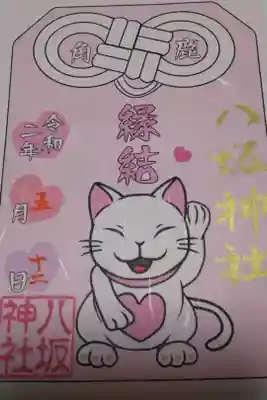 鹿角
縁結
八坂神社
令和
二年
五
月
十二
日
八坂
神社